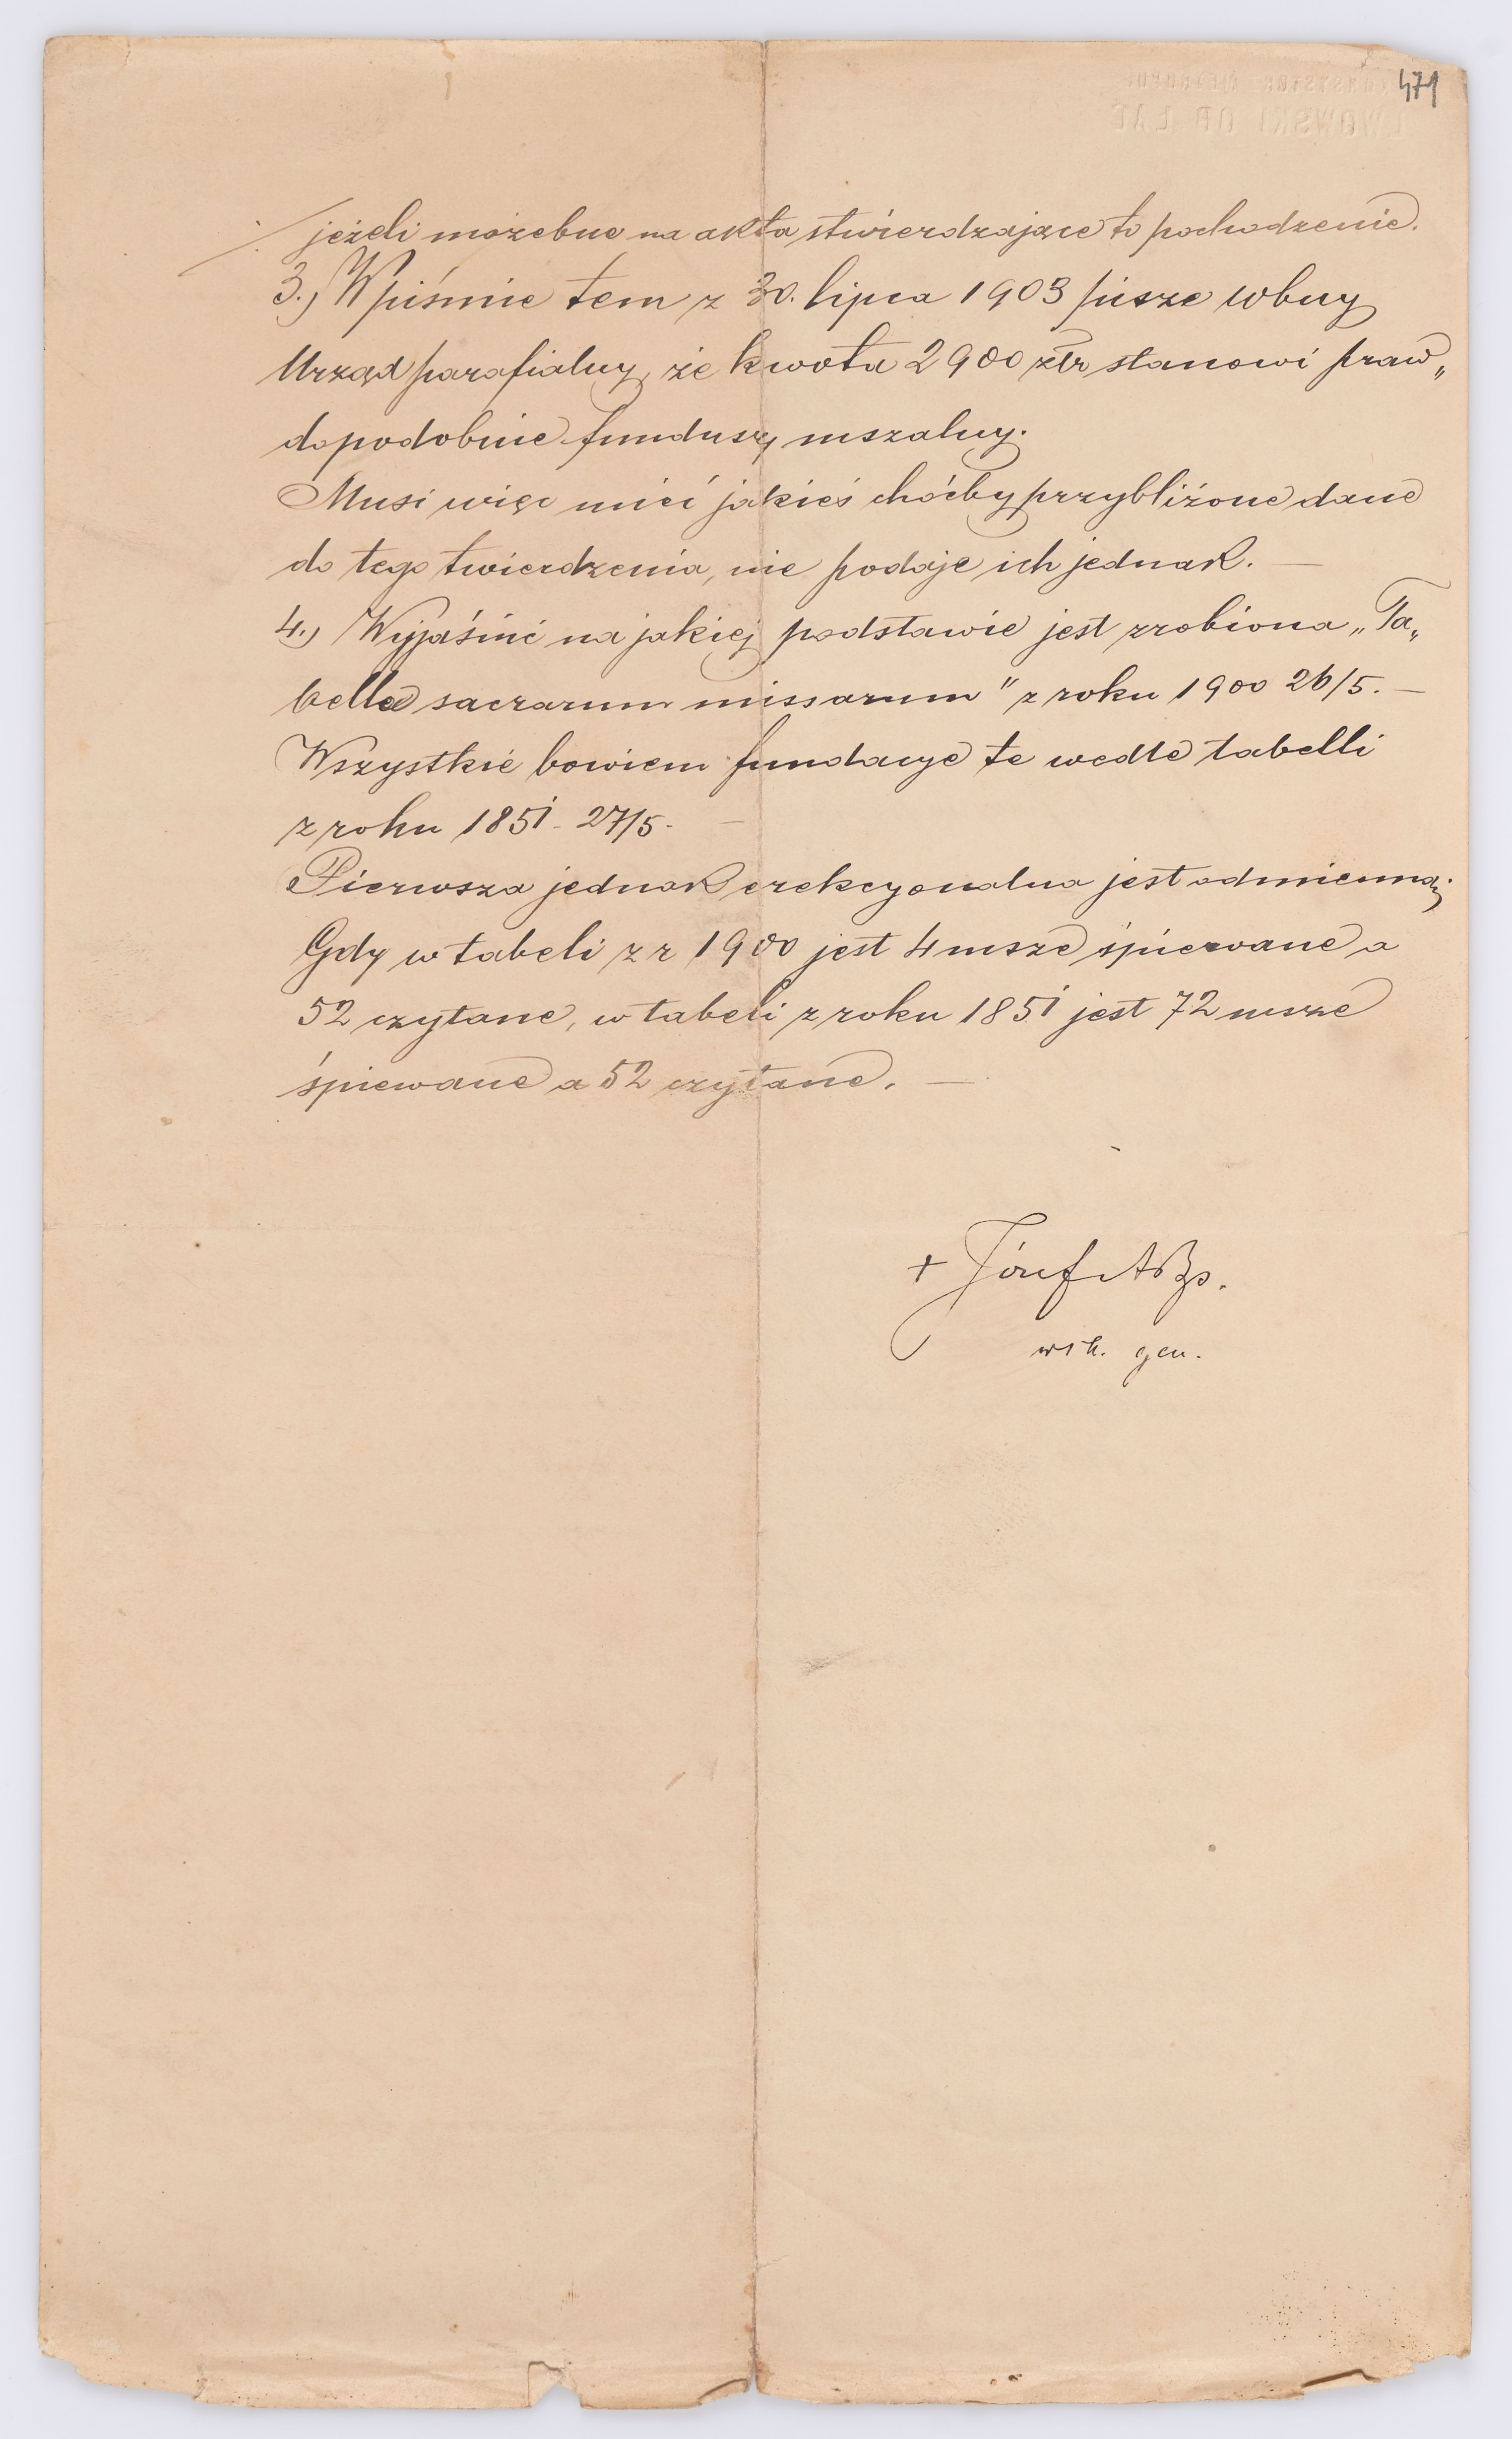 471
LWOWSKI OB ŁAC
jeżeli możebne na akta stwierdzające to pochodzenie.
3.) W piśmie tem z 30. lipca 1903 pisze wbny
Urząd parafialny, że kwota 2900 złr stanowi praw„
dopodobnie fundusz mszalny.
Musi więc mieć jakieś choćby przybliżone dane
do tego twierdzenia, nie podaje ich jednak. —
4.) Wyjaśnić na jakiej podstawie jest zrobiona „Ta„
bella sacrarum missarum" z roku 1900 26/5. —
Wszystkie bowiem fundacye te wedle tabelli
z roku 1851 - 27/5. —
Pierwsza jednak erekcyonalna jest odmienną.
Gdy w tabeli z r 1900 jest 4 msze śpiewane a
52 czytane, w tabeli z roku 1851 jest 72 msze
śpiewane a 52 czytane. —
+ Józef ABp.
wik. gen.